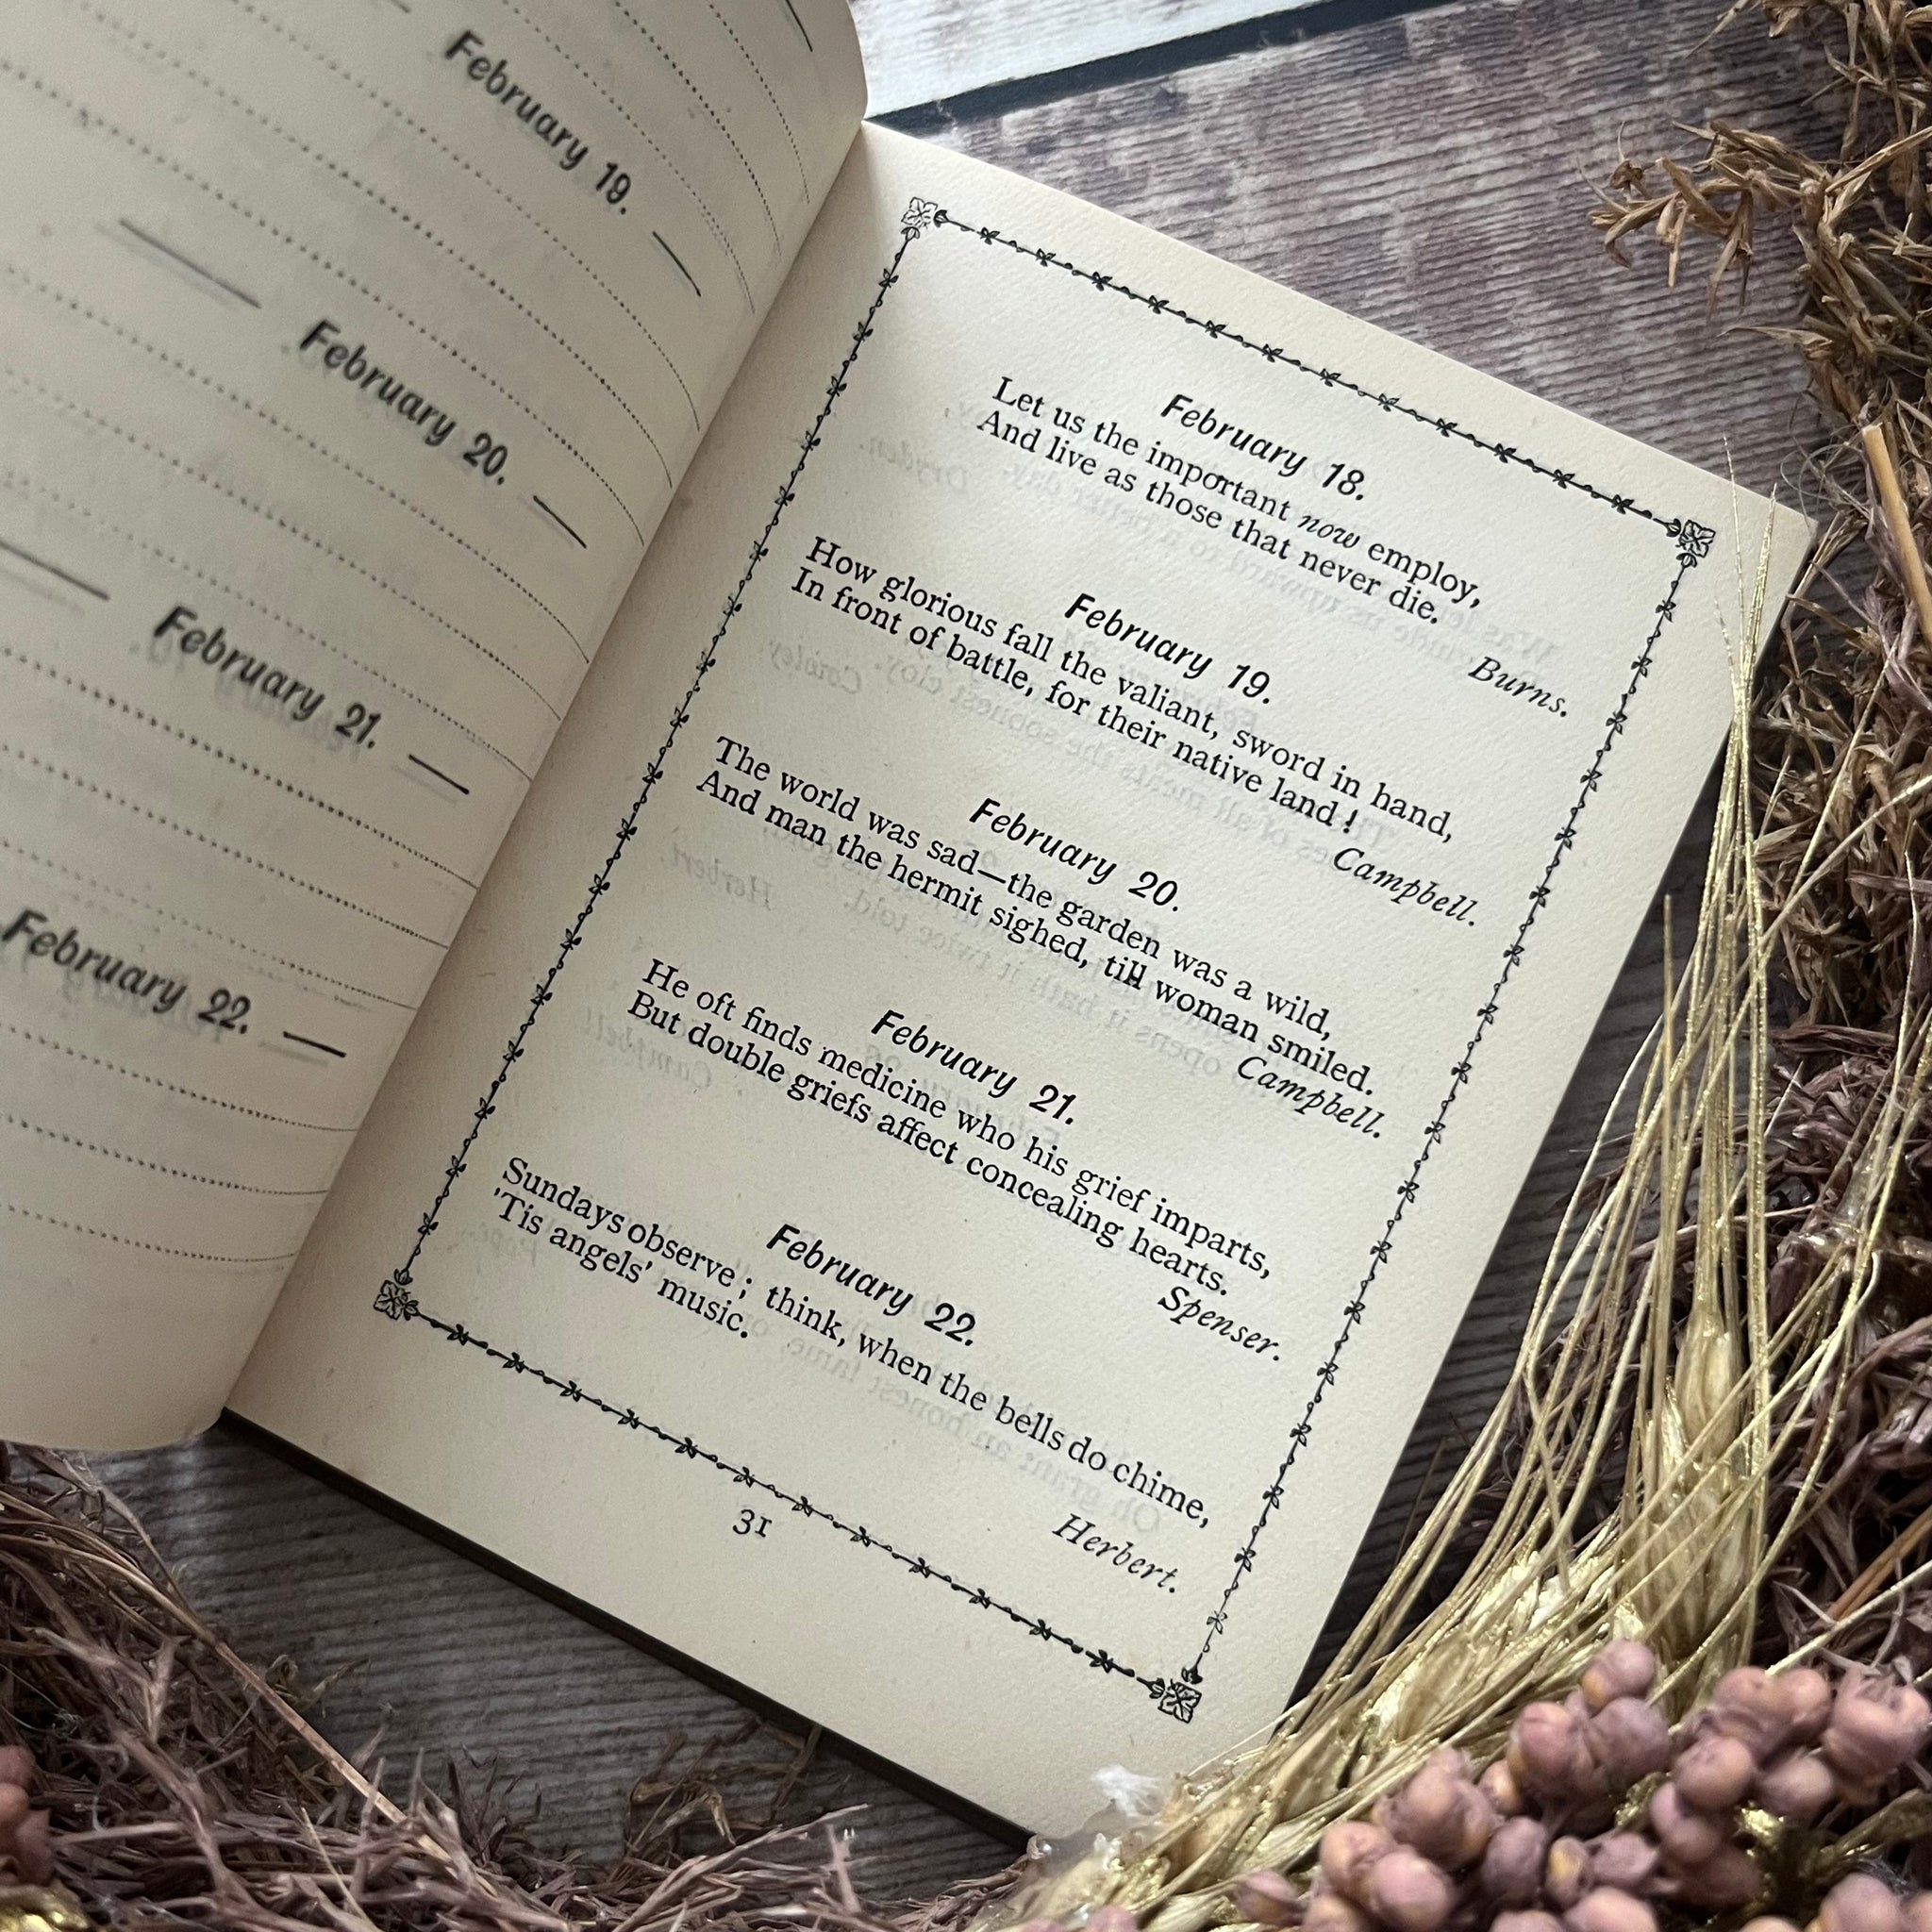 February 19.
February 20.
February 21.
February 22.
February 18.
Let us the important now employ,
And live as those that never die.
Burns.
February 19.
How glorious fall the valiant, sword in hand,
In front of battle, for their native land!
Campbell.
February 20.
The world was sad—the garden was a wild,
And man the hermit sighed, till woman smiled.
Campbell.
February 21.
He oft finds medicine who his grief imparts,
But double griefs affect concealing hearts.
Spenser.
February 22.
Sundays observe; think, when the bells do chime,
'Tis angels' music.
Herbert.
31